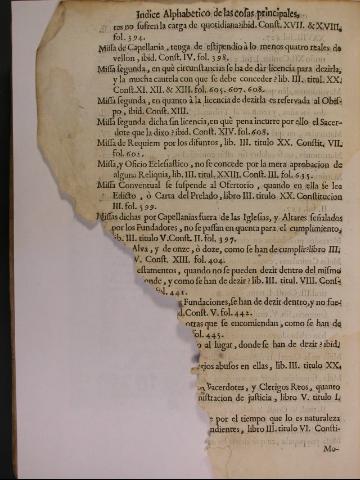 Indice Alphabetico de las cosas principales,
tes no sufren la carga de quotidiana: ibid. Const. XVII. & XVIII.
fol. 394.
Missa de Capellania, tenga de estipendio à lo menos quatro reales de
vellon, ibid. Const. IV. fol. 398.
Missa segunda, en què circunstancias se ha de dàr licencia para dezirla,
y la mucha cautela con que se debe conceder? lib. III. titul. XX.
Const. XI. XII. & XIII. fol. 605. 607. 608.
Missa segunda, en quanto à la licencia de dezirla es reservada al Obis-
po, ibid. Const. XIII.
Missa segunda dicha sin licencia, en què pena incurre por ello el Sacer-
dote que la dixo? ibid. Const. XIV. fol. 608.
Missa de Requiem por los difuntos, lib. III. titulo XX. Constit. VII.
fol. 601.
Missa, y Oficio Eclesiastico, no se concede por la mera aprobacion de
alguna Reliquia, lib. III. titul. XXIII. Const. III. fol. 635.
Missa Conventual se suspende al Ofertorio, quando en ella se lea
Edicto, ò Carta del Prelado, libro III. titulo XX. Constitucion
III. fol. 599.
Missas dichas por Capellanias fuera de las Iglesias, y Altares señalados
por los Fundadores, no se passan en quenta para el cumplimiento,
lib. III. titulo V. Const. II. fol. 397.
Alva, y de onze, ò doze, como se han de cumplir? libro III.
V. Const. XIII. fol. 404.
estamentos, quando no se pueden dezir dentro del mismo
onde, y como se han de dezir? lib. III. titul. VIII. Cons-
fol. 441.
Fundaciones, se han de dezir dentro, y no fue-
d. Const. V. fol. 442.
otras que se encomiendan, como se han de
fol. 445.
o al lugar, donde se han de dezir? ibid.
abusos en ellas, lib. III. titulo XX.
Sacerdotes, y Clerigos Reos, quanto
nistracion de justicia, libro V. titulo I.
por el tiempo que lo es naturaleza
ndientes, libro III. titulo VI. Consti-
Mo-